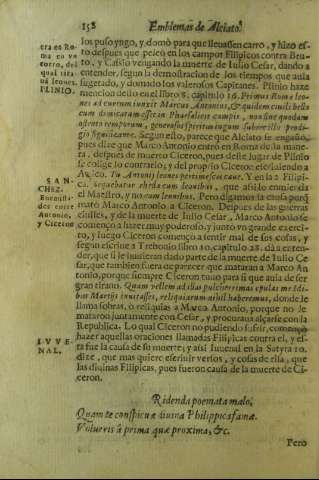 158 Emblemas de Alciato.
los puso yngo, y domò para que lleuassen carro, y hizo es-
to despues que peleò en los campos Filipicos contra Bru-
to, y Cassio vengando la muerte de Iulio Cesar, dando a
entender, segun la demostracion de los tiempos que auia
sugetado, y domado los valerosos Capitanes. Plinio haze
mencion desto en el libro 8. capitulo 16. Primus Romæ leo-
nes ad currum iunxit Marcus Antonius, & quidem ciuili bello
cum dimicatum esset in Pharsalicis campis, non sine quodam
ostento temporum, generosos spiritus iugum subire illo prodi-
gio significante. Segun esto, parece que Alciato se engaño,
pues dize que Marco Antonio entrò en Roma de la mane-
ra, despues de muerto Ciceron, pues deste lugar de Plinio
se colige lo contrario, y del proprio Ciceron escriuiendo a
Atico. Tu Antonij leones pertimescas caue. Y en la 2 Filipi-
ca. sequebatur rheda cum leonibus, que assi lo emmienda
el Maestro, y no cum lenonibus. Pero digamos la causa porq̃
matò Marco Antonio a Ciceron. Despues de las guerras
ciuiles, y de la muerte de Iulio Cesar, Marco Antonio se
començo a hazer muy poderoso, y juntò vn grande exerci-
to, y luego Ciceron começo a sentir mal de sus cosas, y
segun escriue a Trebonio libro 10. capitulo 28. dà a enten-
der, que si le huuieran dado parte de la muerte de Iulio Ce
sar, que tambien fuera de parecer que mataran a Marco An
tonio, porque siempre Ciceron tuuo para si que auia de ser
gran tirano. Quam vellem ad illas pulcherrimas epulas me Idi-
bus Martijs inuitasses, reliquiarum nihil haberemus, donde le
llama sobras, o reliquias a Marco Antonio, porque no le
mataron juntamente con Cesar, y procuraua alçarse con la
Republica. Lo qual Ciceron no pudiendo sufrir, començò
hazer aquellas oraciones llamadas Filipicas contra el, y es-
ta fue la causa de su muerte, y assi Iuuenal en la Satyra 10.
dize, que mas quiere escriuir versos, y cosas de ella, que
las diuinas Filipicas, pues fueron causa de la muerte de Ci-
ceron.
Ridenda poemata malo,
Quam te conspicuæ diuina Philippica famæ
Volueris à prima quæ proxima, &c.
Pero
era en Ro-
ma en vn
carro, del
qual tira
uã leones.
PLINIO.
SAN-
CHEZ.
Enemis-
dad entre
Antonio,
y Ciceron
IVVE
NAL.